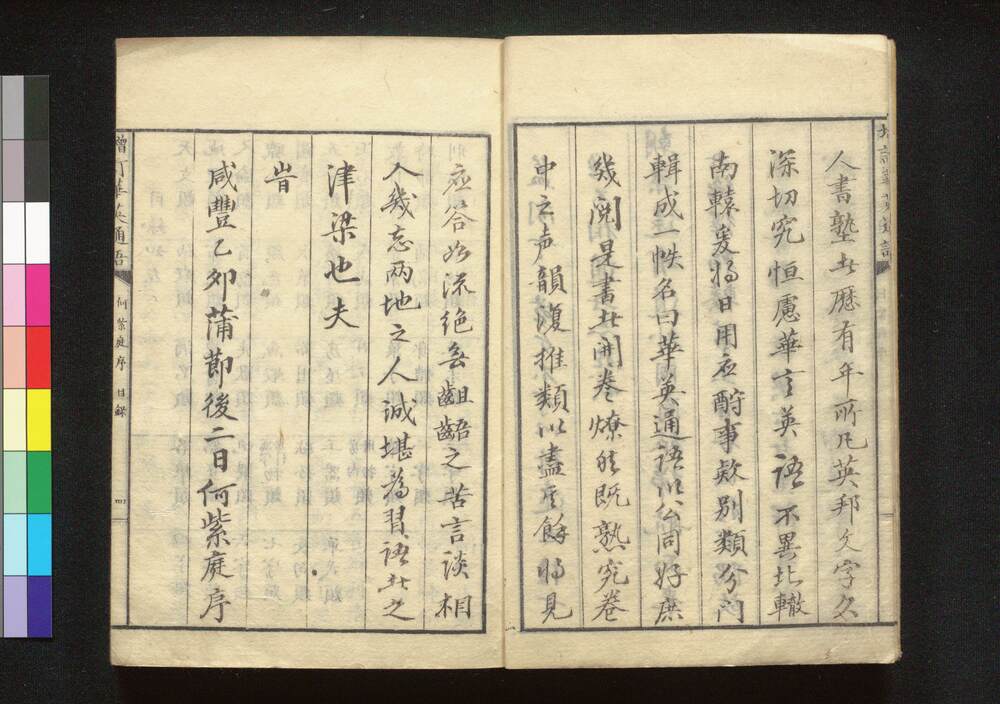 人書塾者歷有年所凡英邦文字久
深切究恒慮華言英語不異北轍
南轅爰將日用應酧事欵別類分門
輯成一帙名曰華英通語以公同好庶
幾閱是書者開卷燎然既熟究卷
中之声韻復推類以盡其餘將見
應答如流絶無齟齬之苦言談相
人幾忘兩地之人誠堪為習語者之
津梁也夫
旹
咸豐乙夘蒲節後二日何紫庭序
增訂華英通語
何紫庭序 目錄
四